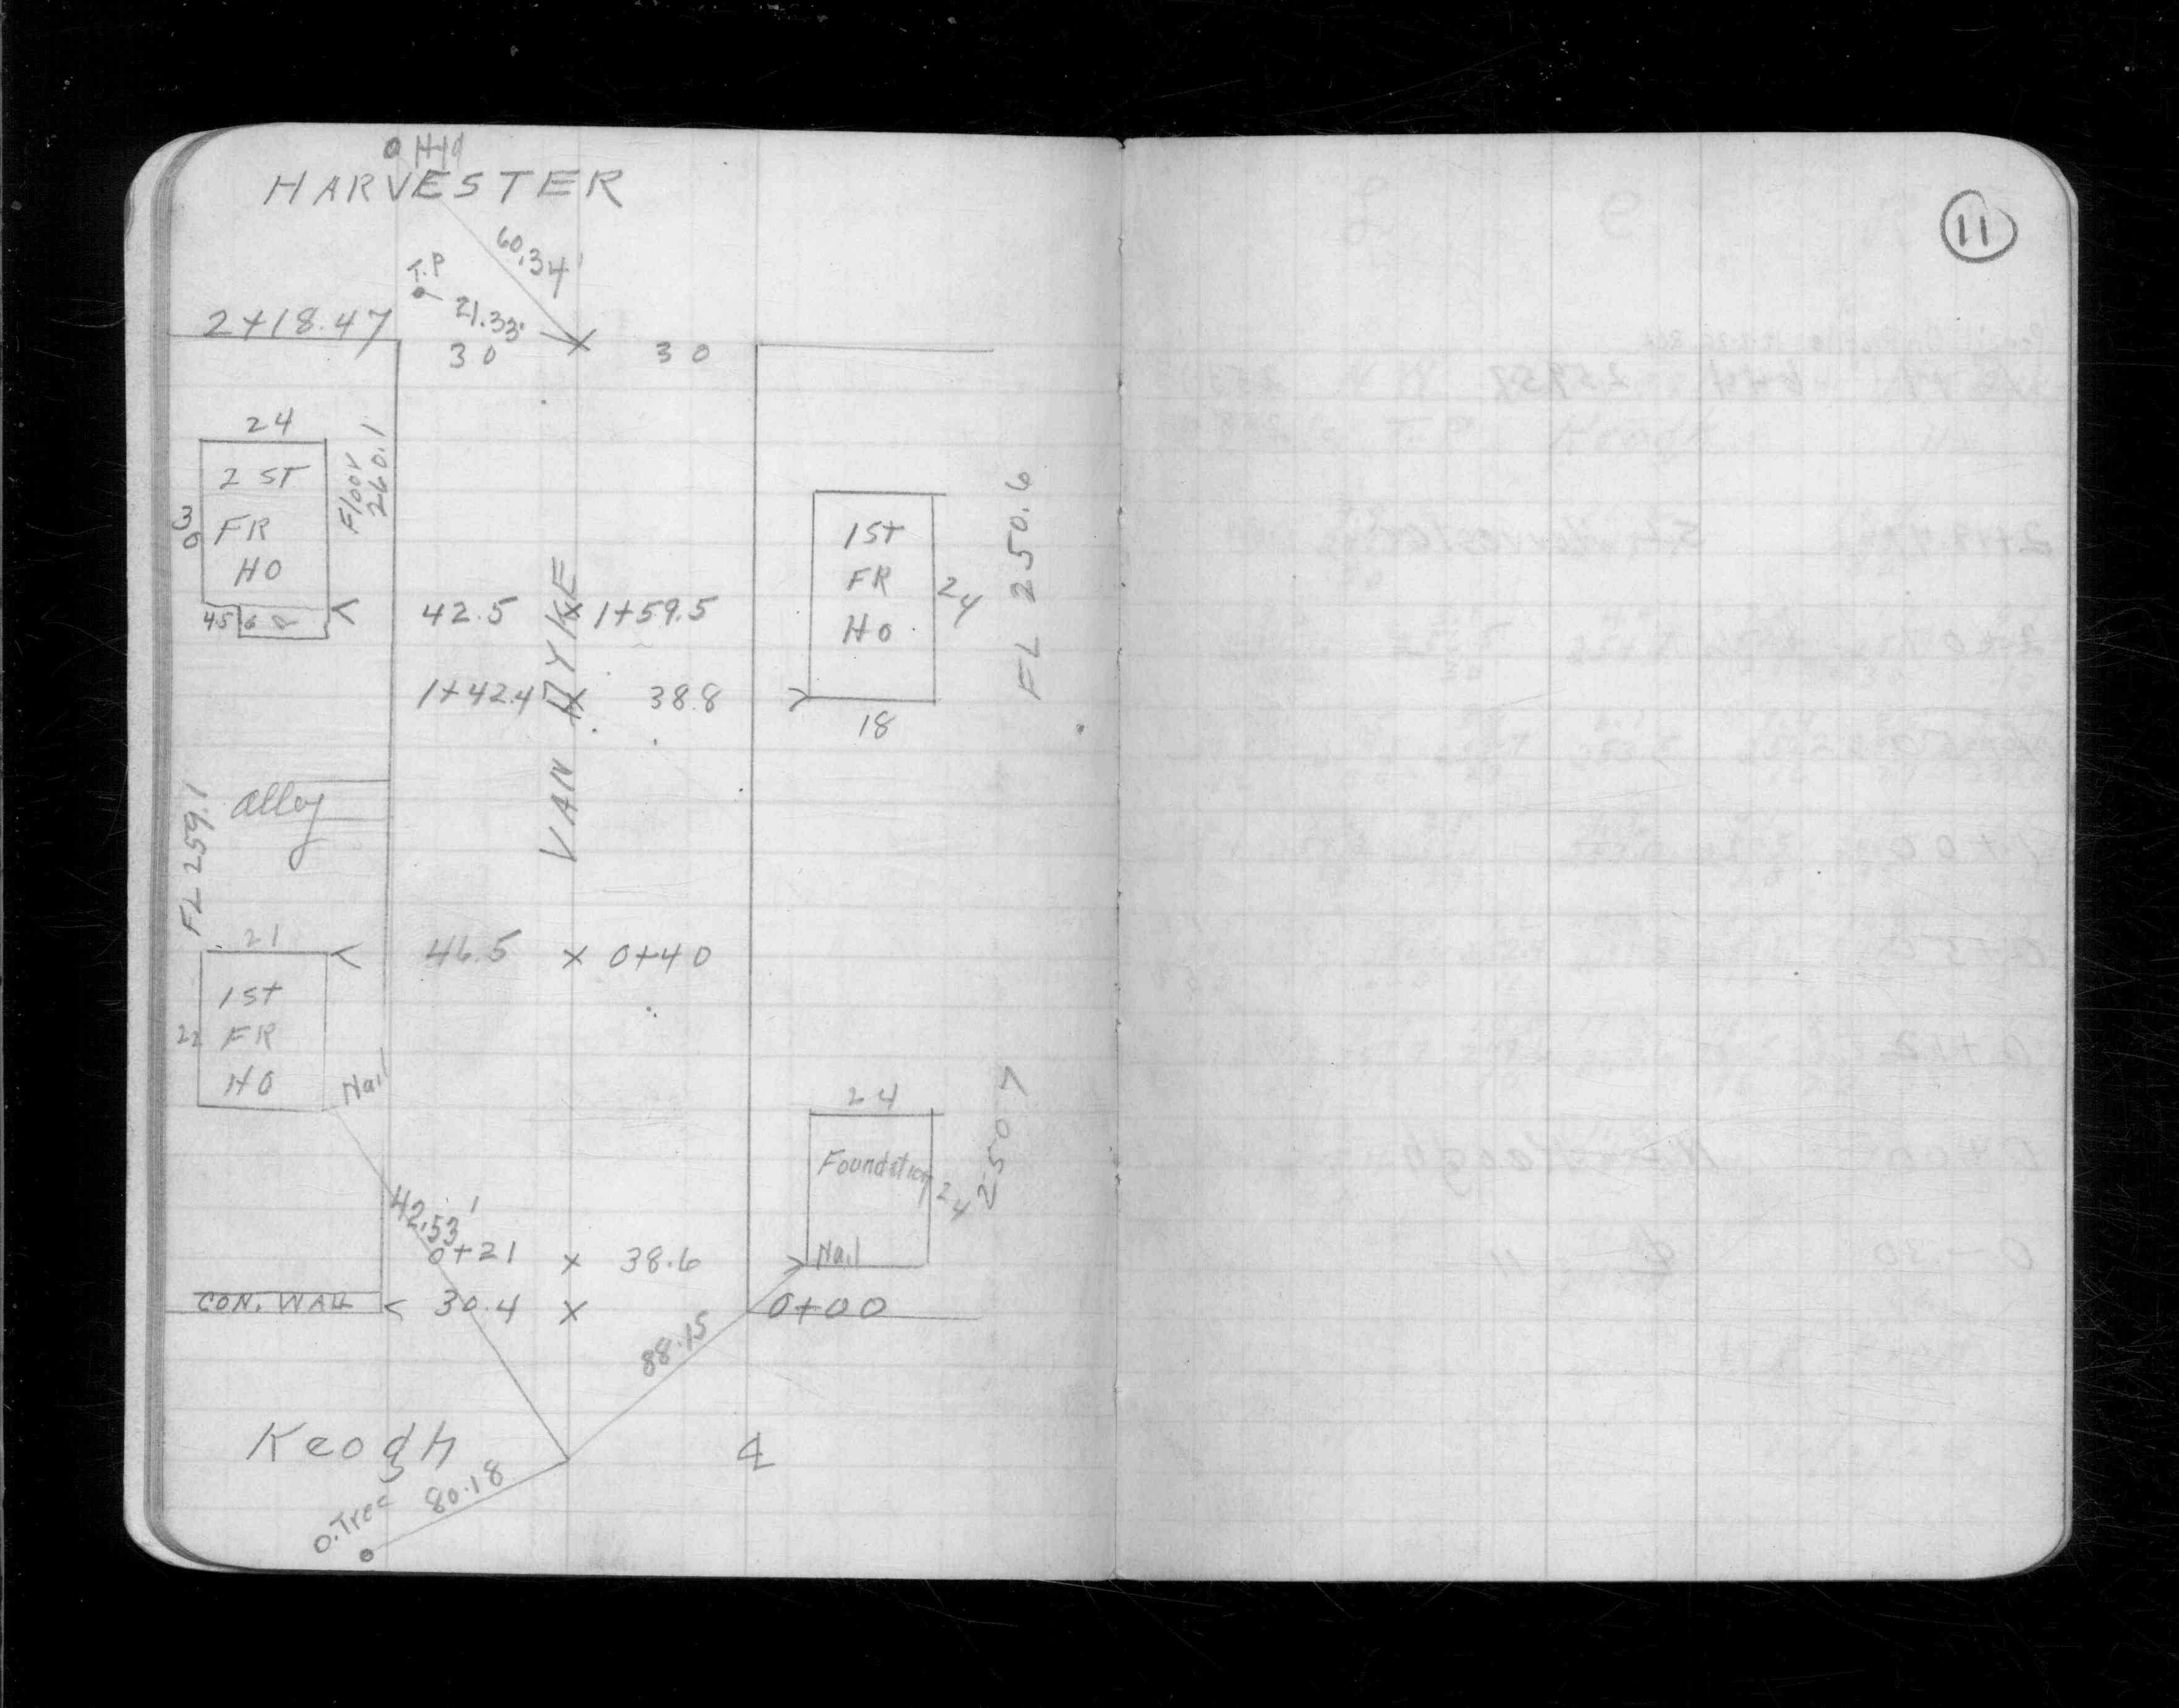 Hyd
HARVESTER
11
60.34'
T.P
21.33'
2+18.47
30 30
24
2 ST
FR
HO
30
Floor
260.1
1ST
FR
HO
24
18
FL 250.6
42.5 x 1+59.5
1+42.4 x 38.8
VAN DYKE
alley
FL 259.1
21
46.5 x 0+40
1ST
FR
HO
22
Nail
24
Foundation
24
Nail
250 7
42.53'
0+21 x 38.6
CON. WALL 30.4 x 0+00
88.15
Keogh ℄
80.18
O.Tree